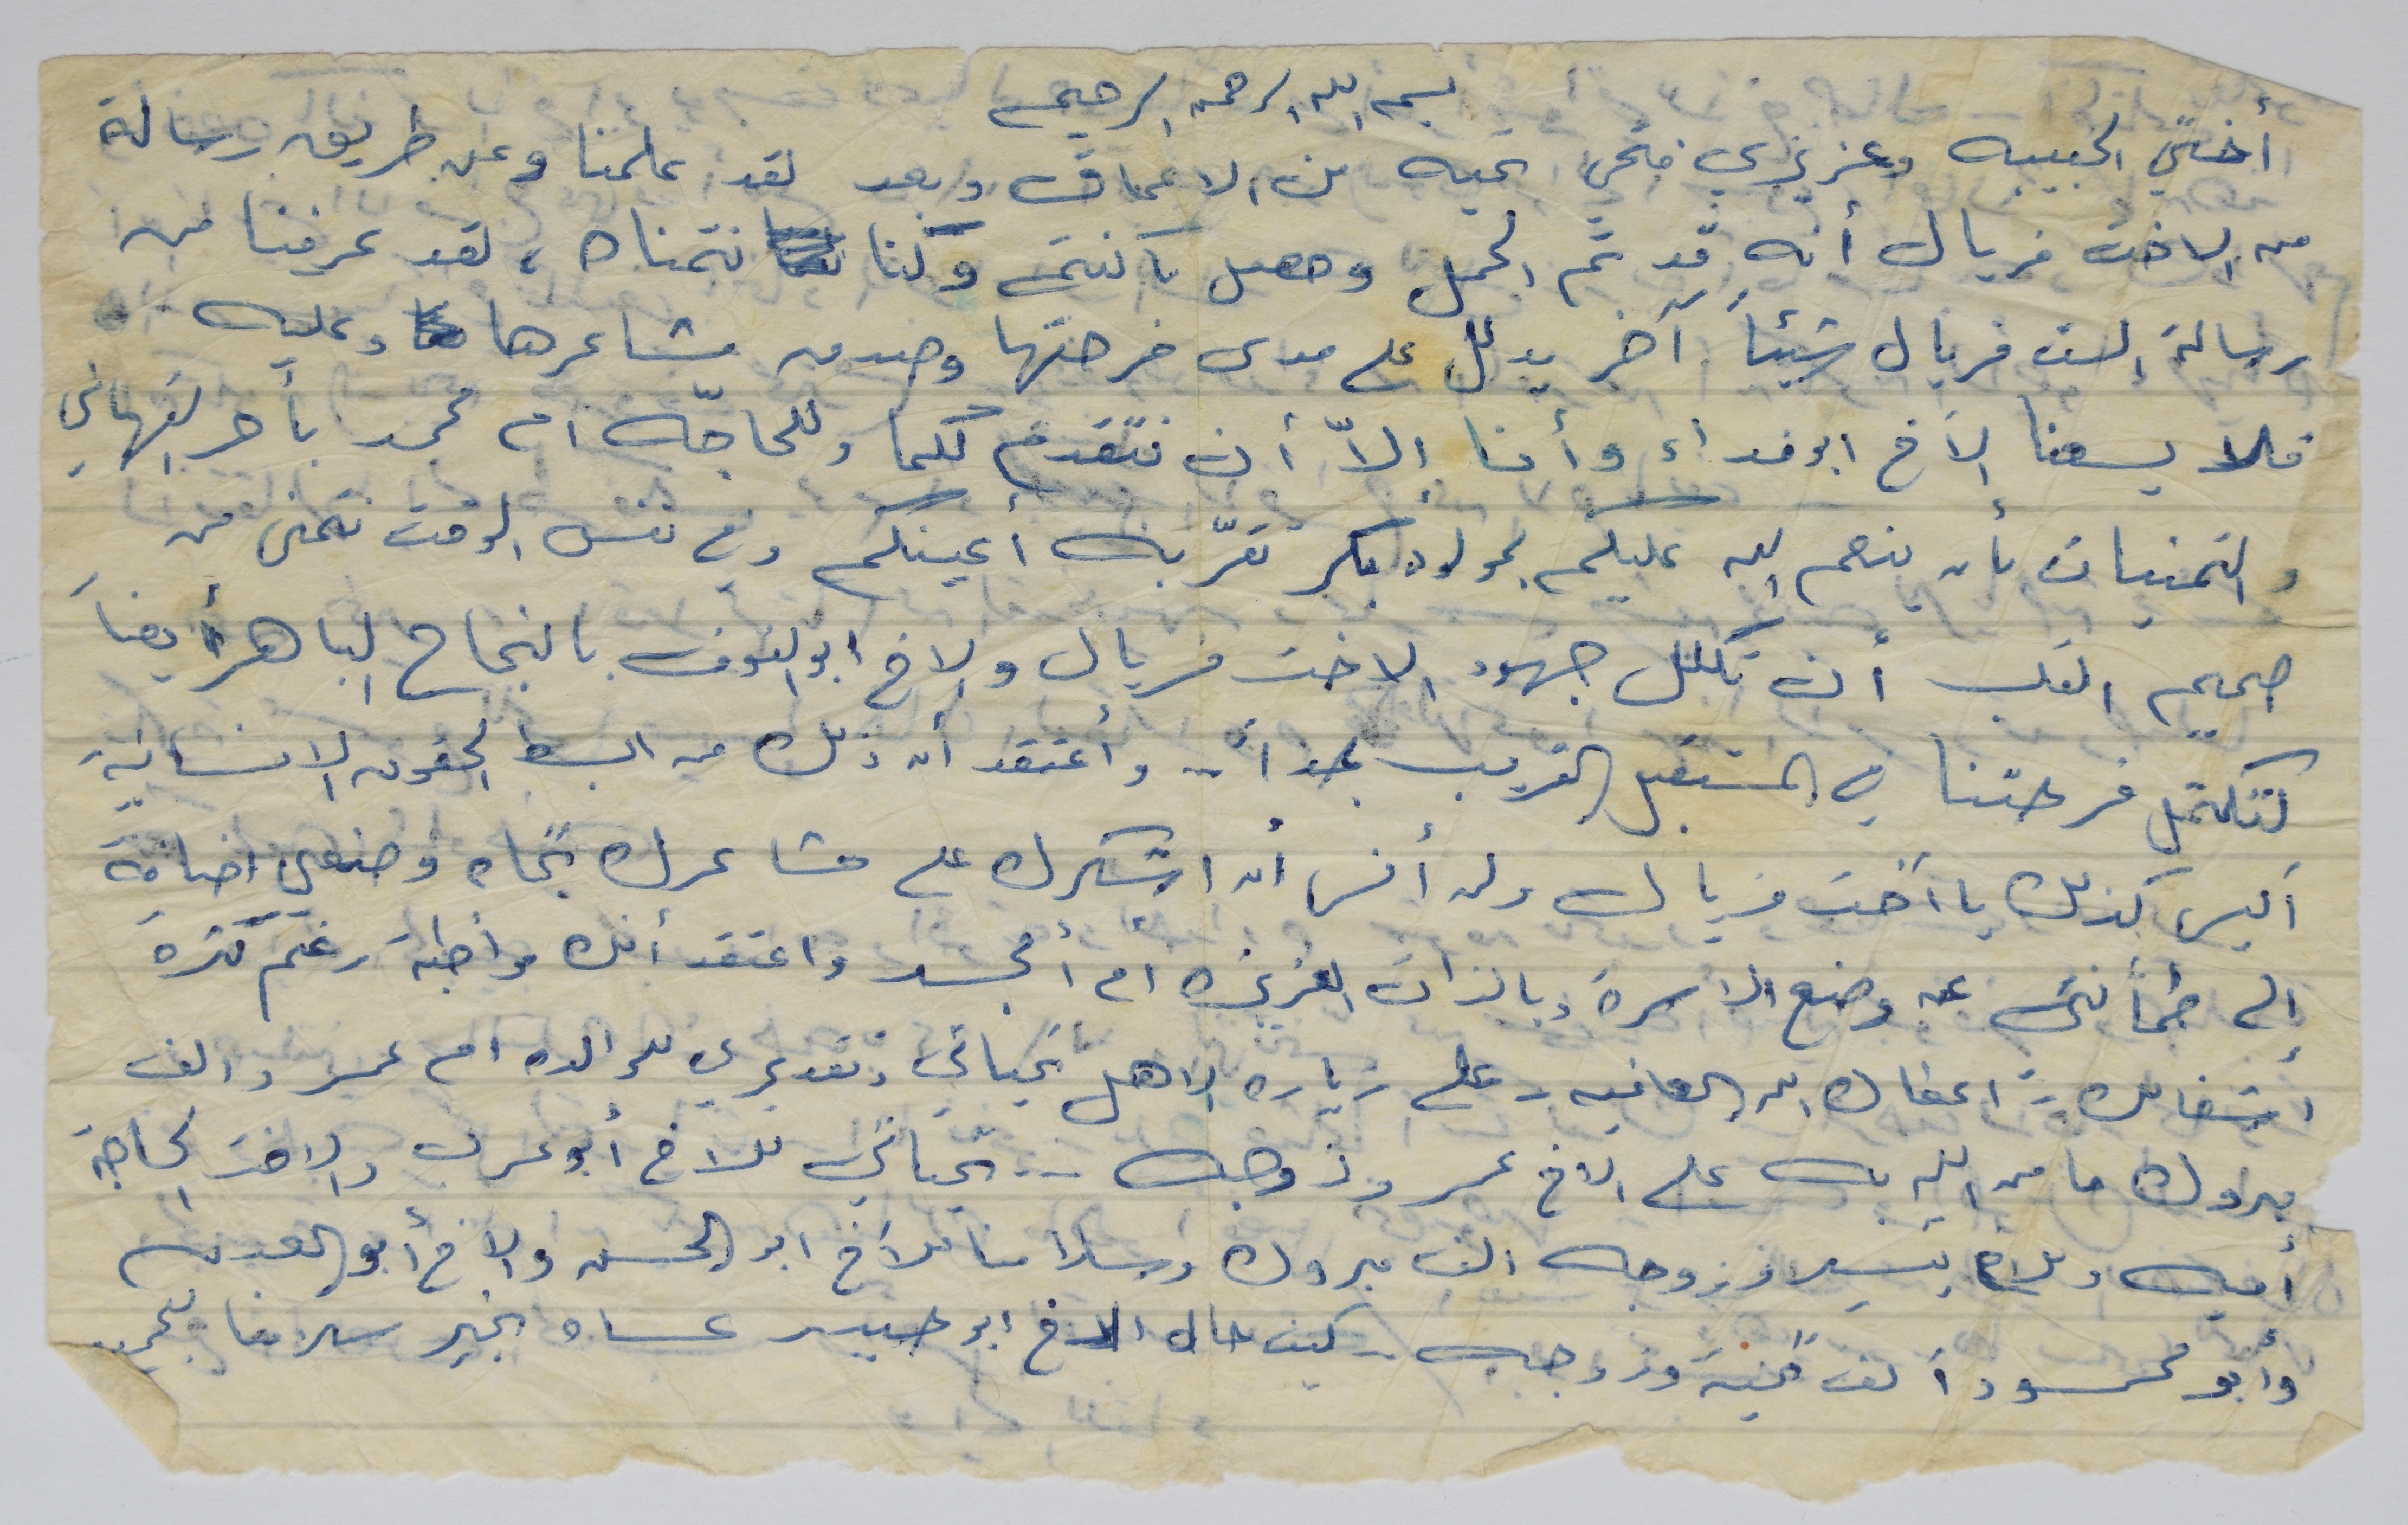 بسم الله الرحمن الرحيم
أختي الحبيبه وعزيزي فتحي تحيه من الاعماق وبعد لقد علمنا وعن طريق رسالة
من الاخت فريال أنه قد تم الحمل وحصل ما كنتم وكنا نتمناه ، لقد عرفنا من
رسالة الست فريال شيئاً آخر يدلل على مدى فرحتها وصدق مشاعرها وعليه
فلا يسعنا الأخ ابو فداء وأنا إلاّ أن نتقدم لكما وللحاجّه ام محمد بأحر التهاني
والتمنيات بأن ينعم الله عليكم بمولود بكر تقرّ به أعينكم وفي نفس الوقت نتمنى من
صميم القلب أن تكلل جهود الاخت فريال والاخ ابو النوف بالنجاح الباهر أيضاً
لتكتمل فرحتنا في المستقبل القريب جداً .. وأعتقد أن ذلك من ابسط الحقوق الانسانية
أليس كذلك يا أخت فريال ولن أنسى أن اشكرك على مشاعرك تجاه وضعي اضافة
إلى طمأنتي عن وضع الاسرة وبالذات العزيزه ام أمجد واعتقد أنك مواظبة رغم كثرة
أشغالك - اعطاك الله العافيه - على زيارة الاهل تحياتي وتقديري للوالده ام عمر والف
مبروك ما من الله به على الاخ عمر وزوجه ... تحياتي للاخ أبو عرب والاخت الحاجة
أميه وللاخ تيسير وزوجه الف مبروك وسلامنا للأخ ابو الحسن والاخ أبو العدس
وأبو محمود ألف تحية وزوجه - كيف حال الاخ ابو حبيب عساه بخير سلامنا للجميع